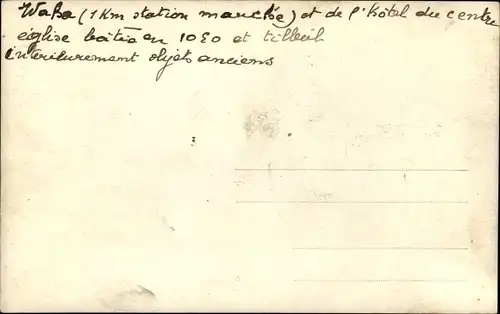 Waha (1 Km station marche) et de l'hôtel du centre
église bâtie en 1050 et tilleul
intérieurement objets anciens